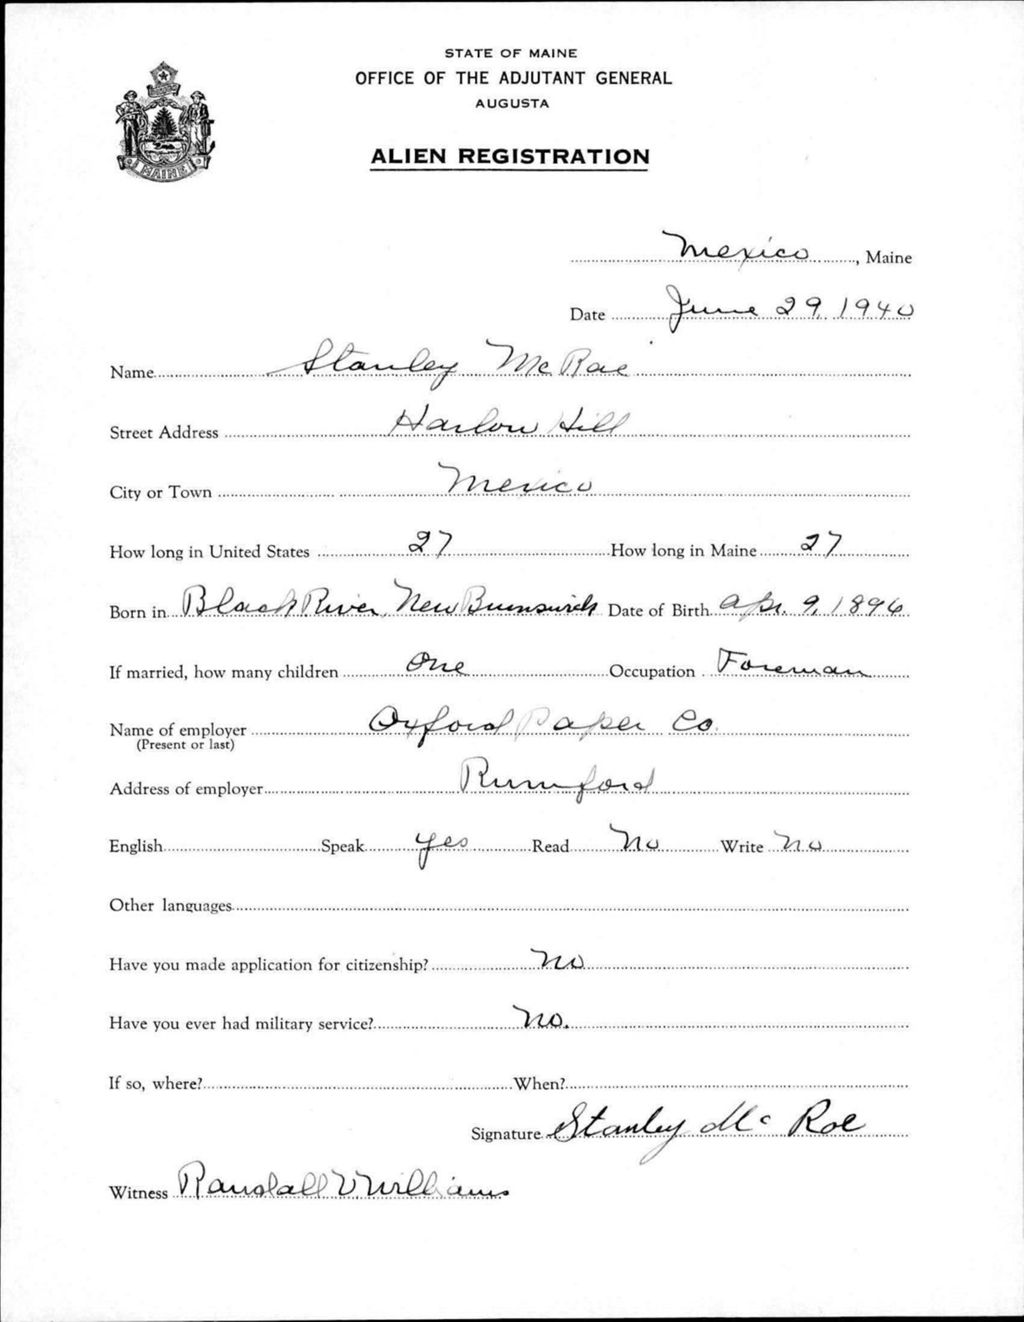 STATE OF MAINE
OFFICE OF THE ADJUTANT GENERAL
AUGUSTA
ALIEN REGISTRATION
MAINE
Mexico, Maine
Date June 29, 1940
Name Stanley McRae
Street Address Harlow Hill
City or Town Mexico
How long in United States 27 How long in Maine 27
Born in Black River, New Brunswick Date of Birth Apr. 9, 1896
If married, how many children One Occupation Foreman
Name of employer Oxford Paper Co.
(Present or last)
Address of employer Rumford
English Speak yes Read No Write No
Other languages
Have you made application for citizenship? No
Have you ever had military service? No.
If so, where? When?
Signature Stanley Mc Rae
Witness Randall V. Williams